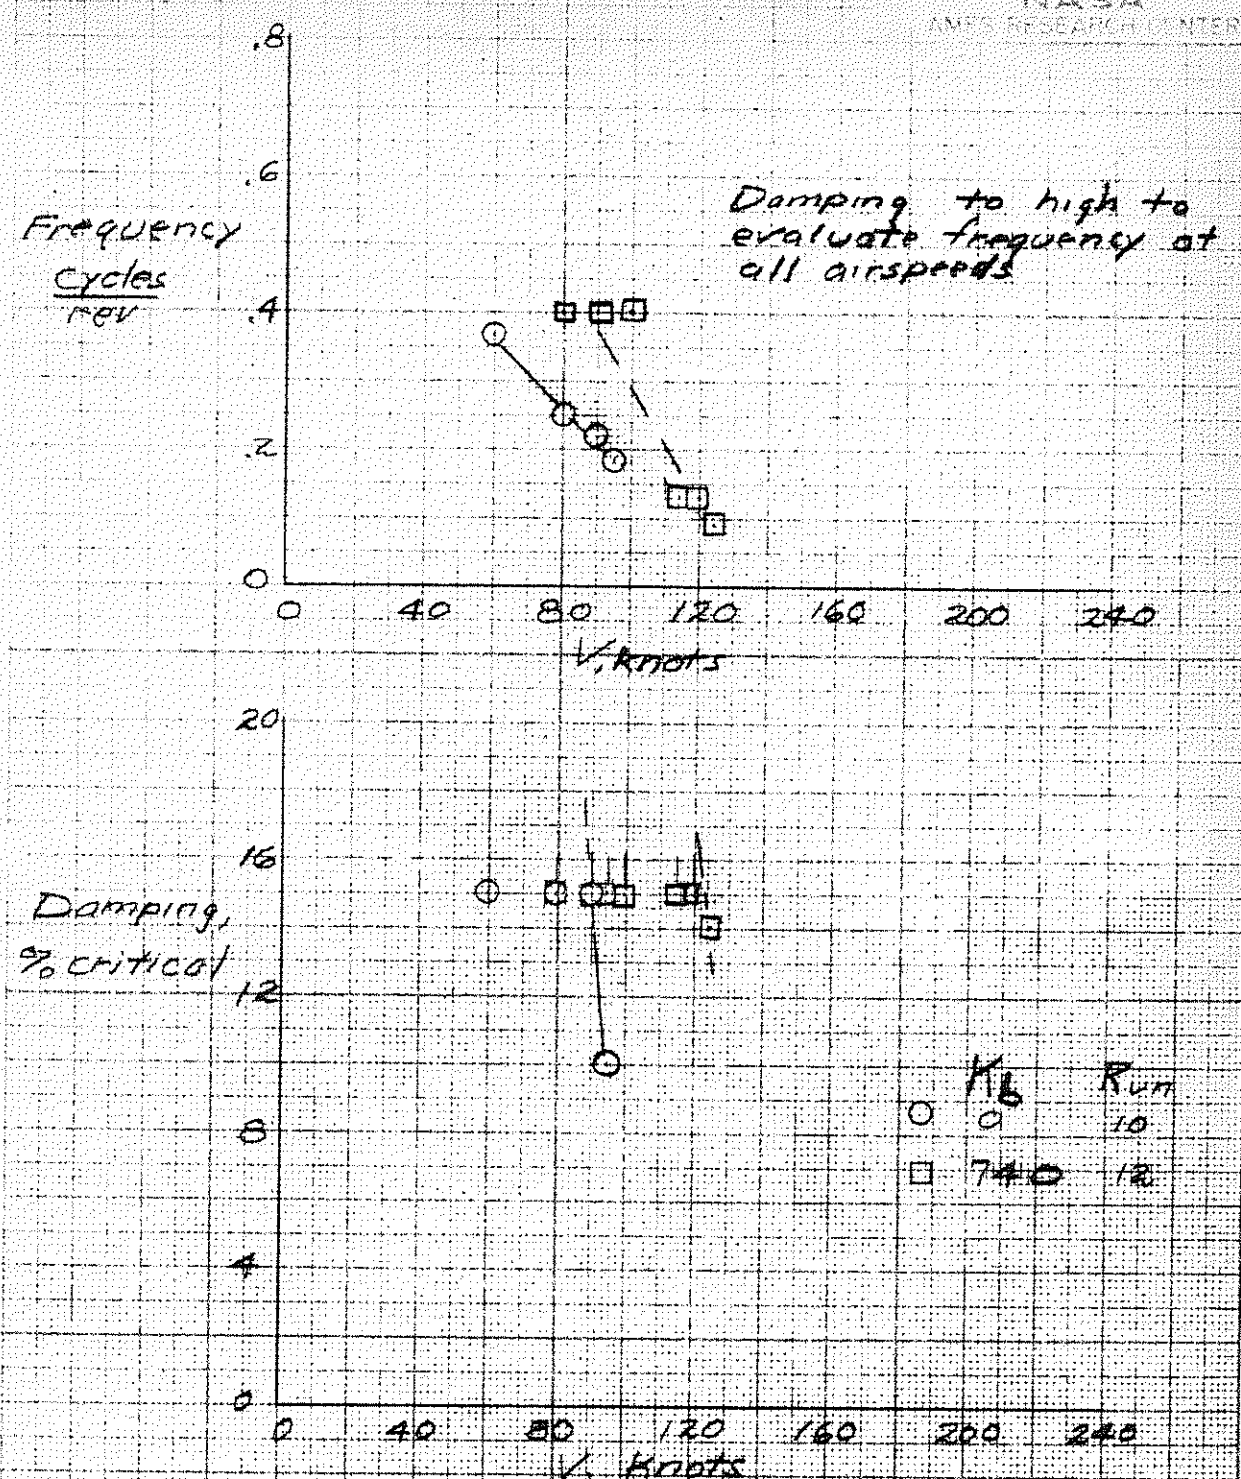 NASA
AMES RESEARCH CENTER
.8
.6
.4
.2
0
Frequency
cycles
rev
Damping to high to
evaluate frequency at
all airspeeds
0 40 80 120 160 200 240
V, knots
20
16
12
8
4
0
Damping,
% critical
Kb Run
0 10
740 12
0 40 80 120 160 200 240
V, Knots